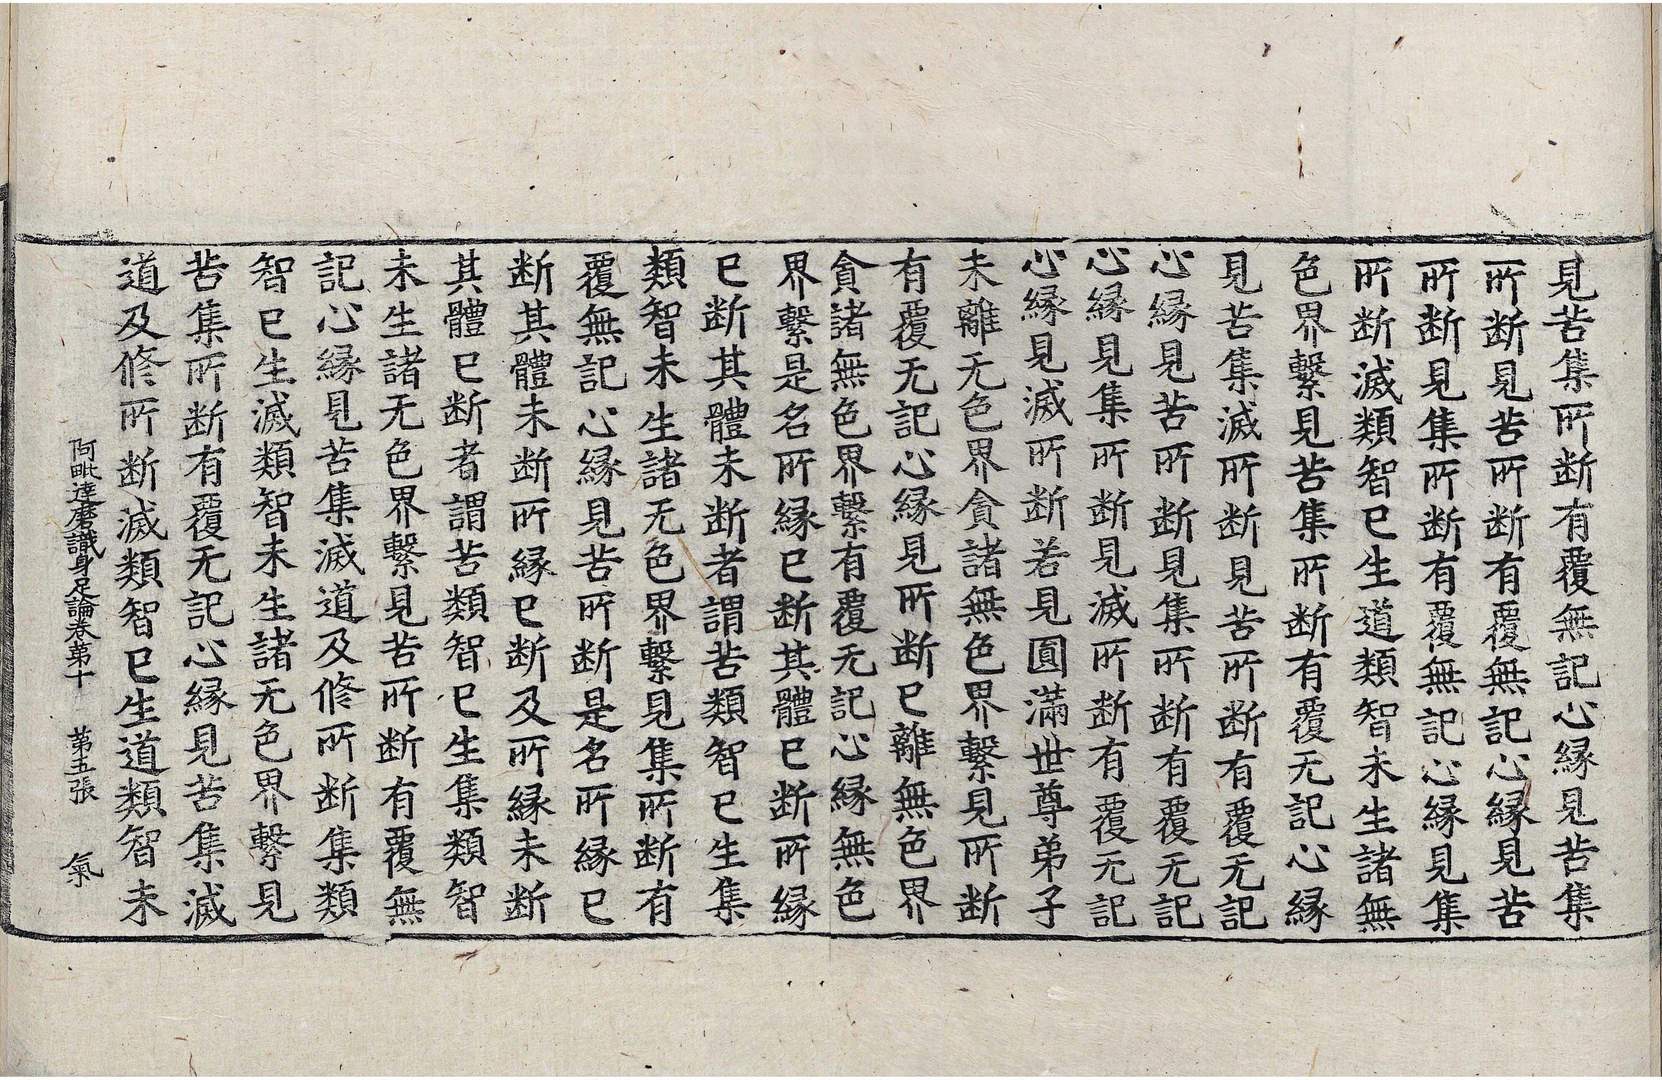 見苦集所断有覆無記心縁見苦集
所断見苦所断有覆無記心縁見苦
所断見集所断有覆無記心縁見集
所断滅類智已生道類智未生諸無
色界繫見苦集所断有覆无記心縁
見苦集滅所断見苦所断有覆无記
心縁見苦所断見集所断有覆无記
心縁見集所断見滅所断有覆无記
心縁見滅所断若見圓滿世尊弟子
未離无色界貪諸無色界繫見所断
有覆无記心縁見所断已離無色界
貪諸無色界繫有覆无記心縁無色
界繫是名所縁已断其體已断所縁
已断其體未断者謂苦類智已生集
類智未生諸无色界繫見集所断有
覆無記心縁見苦所断是名所縁已
断其體未断所縁已断及所縁未断
其體已断者謂苦類智已生集類智
未生諸无色界繫見苦所断有覆無
記心縁見苦集滅道及修所断集類
智已生滅類智未生諸无色界繫見
苦集所断有覆无記心縁見苦集滅
道及修所断滅類智已生道類智未
阿毗達磨識身足論卷第十　第五張　氣